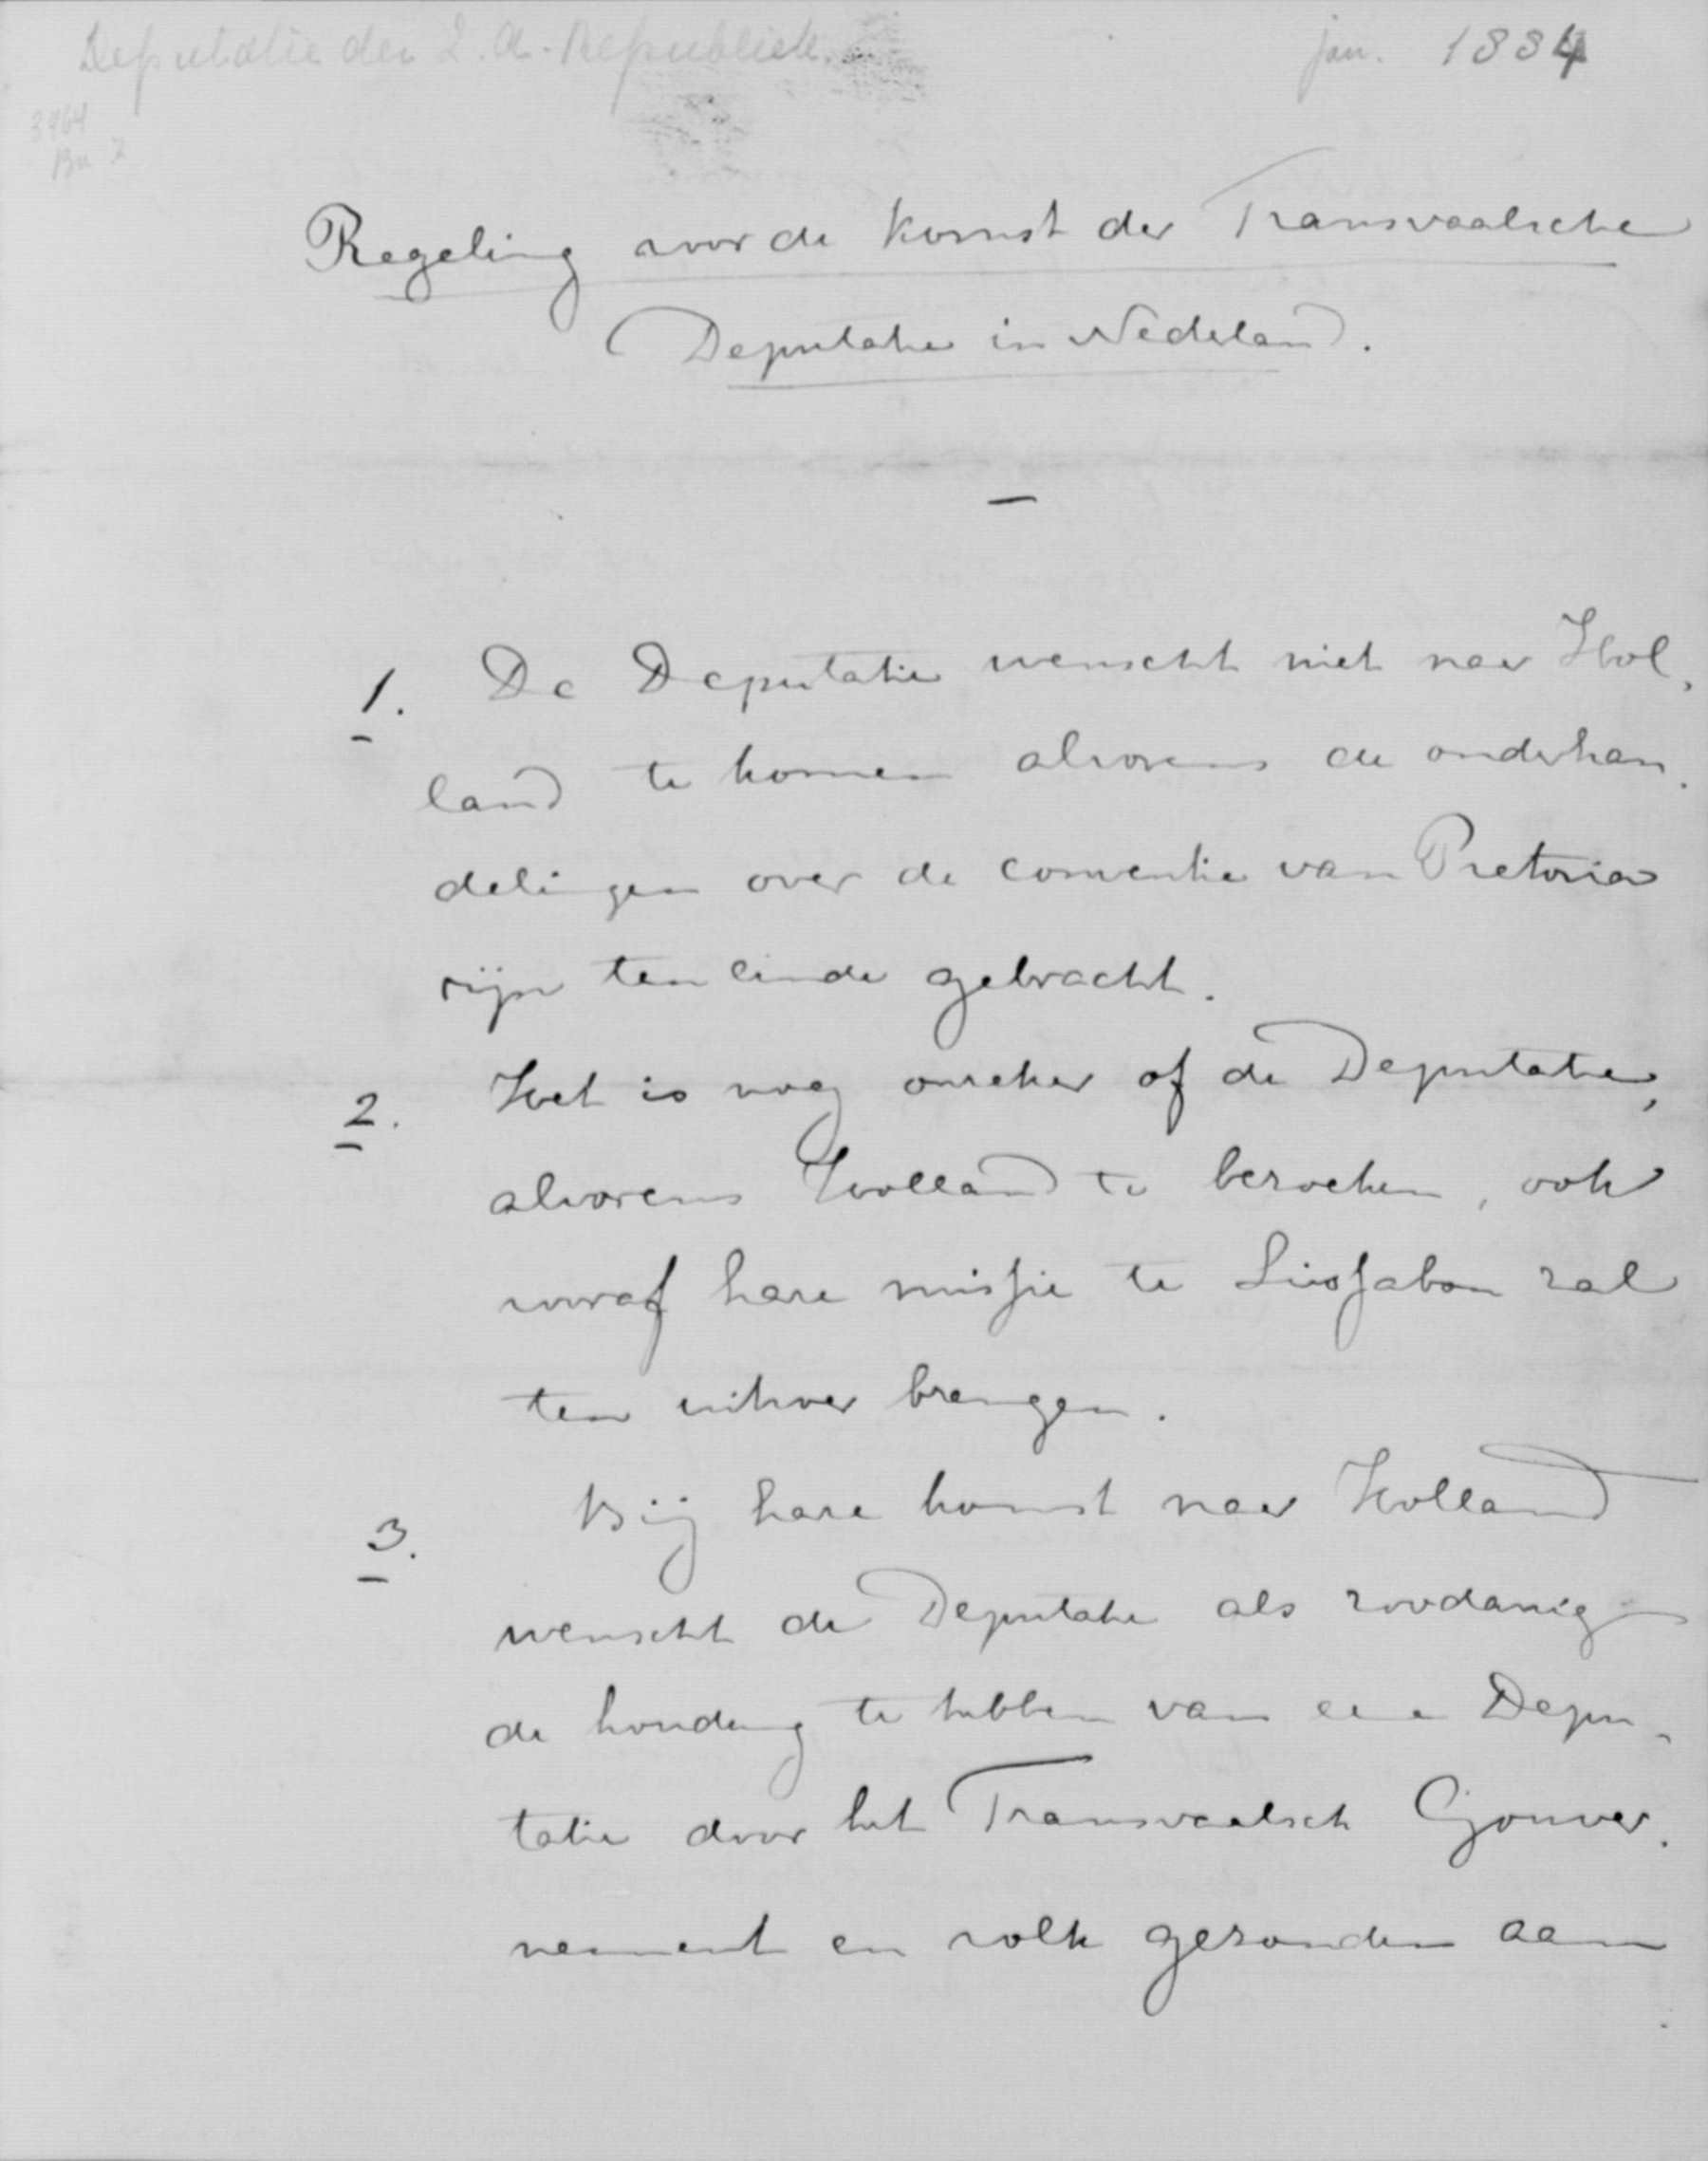 Deputatie der Z. A. Republiek.
jan. 1884
3964
Bu 2
Regeling voor de komst der Transvaalsche
Deputatie in Nederland.
—
1. De Deputatie wenscht niet naar Hol-
land te komen alvorens de onderhan-
delingen over de conventie van Pretoria
zijn ten einde gebracht.
2. Het is nog onzeker of de Deputatie,
alvorens Holland te bezoeken, ook
vooraf hare missie te Lissabon zal
ten uitvoer brengen.
3. Bij hare komst naar Holland
wenscht de Deputatie als zoodanig
de houding te hebben van eene Depu-
tatie door het Transvaalsch Gouver-
nement en volk gezonden aan